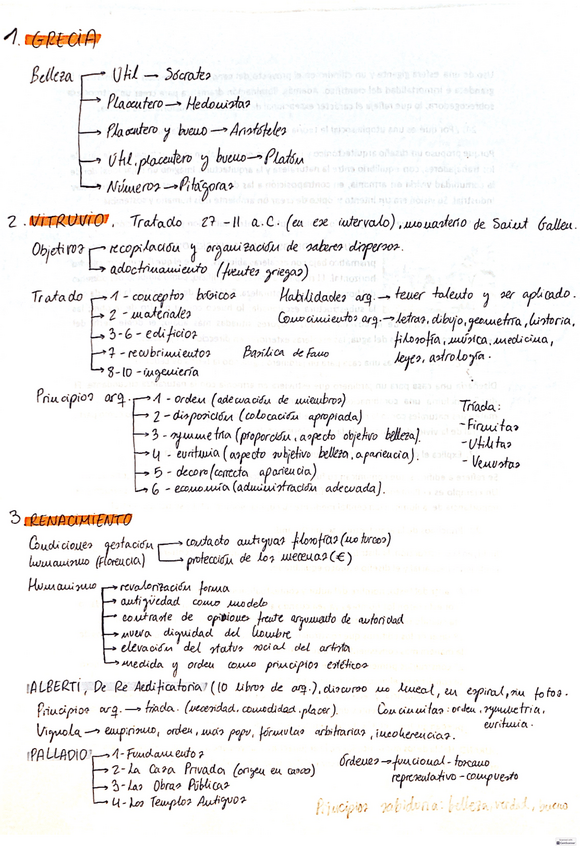 1. GRECIA
Belleza
Útil → Sócrates
Placentero → Hedonistas
Placentero y bueno → Aristóteles
Útil, placentero y bueno → Platón
Números → Pitágoras
2. VITRUVIO, Tratado 27-11 a.C. (en ese intervalo), monasterio de Saint Gallen.
Objetivos
recopilación y organización de saberes dispersos.
adoctrinamiento (fuentes griegas)
Tratado
1 - conceptos básicos
2 - materiales
3-6 - edificios
7 - recubrimientos
8-10 - ingeniería
Basílica de Fano
Habilidades arq. → tener talento y ser aplicado.
Conocimientos arq. → letras, dibujo, geometría, historia,
filosofía, música, medicina,
leyes, astrología.
Principios arq.
1 - orden (adecuación de miembros)
2 - disposición (colocación apropiada)
3 - symmetria (proporción, aspecto objetivo belleza).
4 - euritmia (aspecto subjetivo belleza, apariencia).
5 - decoro (correcta apariencia)
6 - economía (administración adecuada).
Tríada:
- Firmitas
- Utilitas
- Venustas
3. RENACIMIENTO
Condiciones gestación
humanismo (Florencia)
contacto antiguas filosofías (no turcos)
protección de los mecenas (€)
Humanismo
revalorización forma
antigüedad como modelo
contraste de opiniones frente argumento de autoridad
nueva dignidad del hombre
elevación del status social del artista
medida y orden como principios estéticos
¡ALBERTI, De Re Aedificatoria! (10 libros de arq.), discurso no lineal, en espiral, sin fotos.
Principios arq. → tríada. (necesidad, comodidad, placer).
Concinnitas: orden, symmetria,
euritmia.
Vignola → empirismo, orden, más popu, fórmulas arbitrarias, incoherencias.
¡PALLADIO!
1 - Fundamentos
2 - La Casa Privada (origen en casas)
3 - Las Obras Públicas
4 - Los Templos Antiguos
Órdenes → funcional - toscano
representativo - compuesto
Principios sabiduría: belleza, verdad, bueno